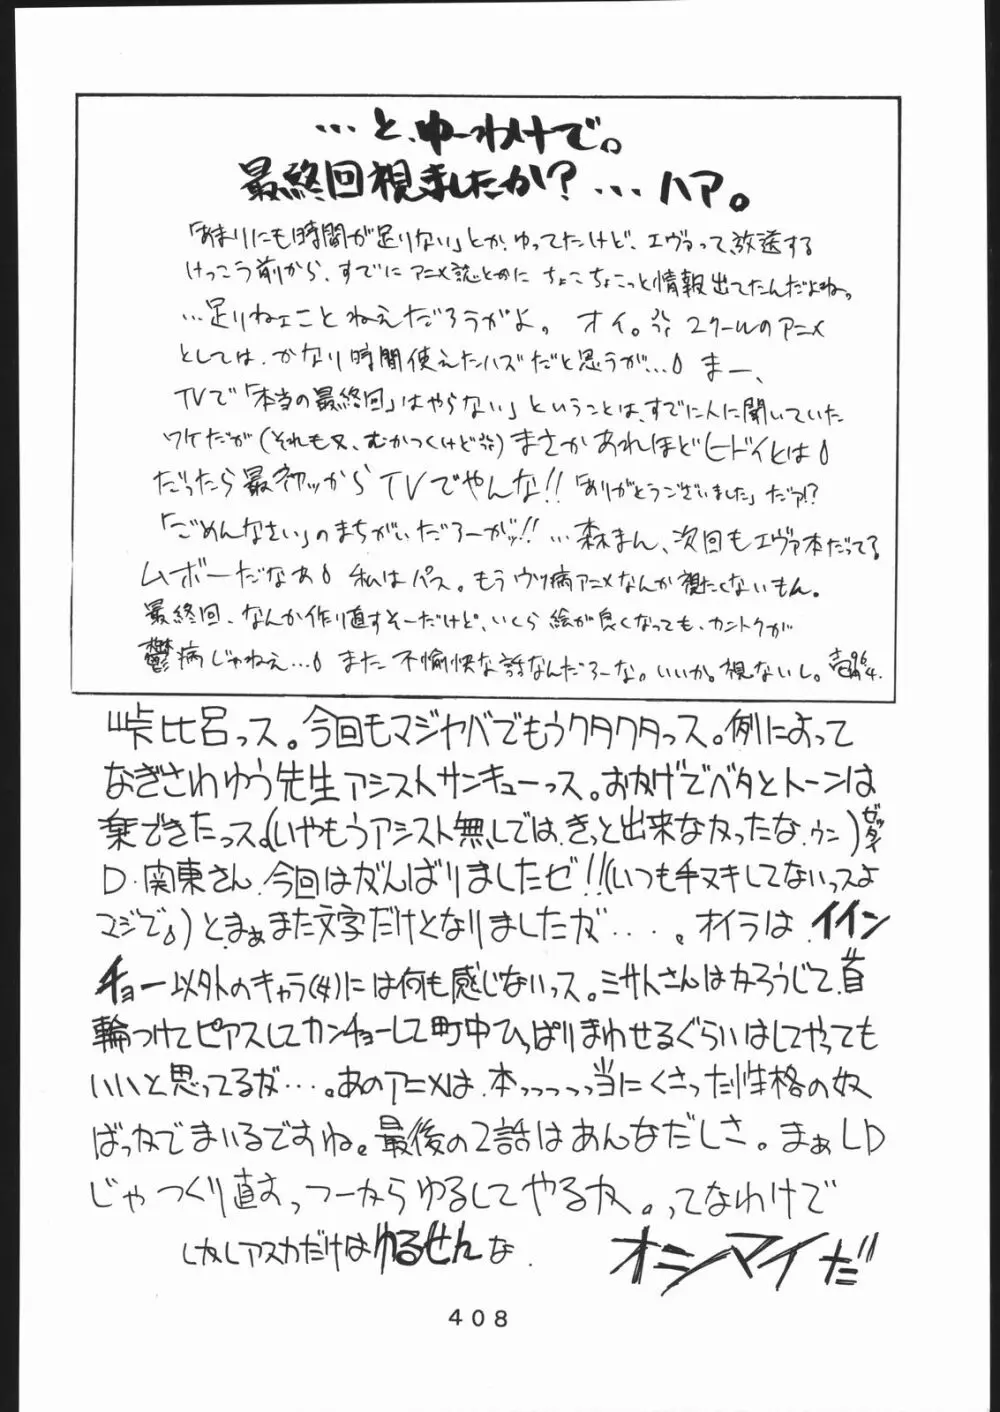 …と、ゆーわけで。
最終回視ましたか?…ハア。
「あまりにも時間が足りない」とか、ゆってたけど、エヴァって、放送する
けっこう前から、すでにアニメ誌とかに ちょこちょこっと情報出てたんだよね。
…足りねェことねえだろうがよ。オイ。 2クールのアニメ
としては、かなり時間使えたハズだと思うが… まー、
TVで「本当の最終回」はやらない」ということは、すでに人に聞いていた
ワケだが(それも又、むかつくけど)まさかあれほどヒドイとは
だったら最初ッからTVでやんな!!「ありがとうございました」だァ!?
「ごめんなさい」のまちがいだろーがッ!!…森まん、次回もエヴァ本だってさ
ムボーだなぁ 私はパス。もうウツ病アニメなんか視たくないもん。
最終回、なんか作り直すそーだけど、いくら絵が良くなっても、カントクが
鬱病じゃねえ… また不愉快な話なんだろーな。いいか。視ないし。 '96.4.
峠比呂っス。今回もマジヤバでもうクタクタっス。例によって
なぎさわゆう先生アシストサンキューっス。おかげでベタとトーンは
楽できたっス。(いやもうアシスト無しでは、きっと出来なかったな、ウン)ゼッタイ
D・関東さん、今回はがんばりましたゼ!!(いつも手ヌキしてないっスよ
マジで)と、まぁまた文字だけとなりましたが・・・・。オイラは、イイン
チョー以外のキャラ(女)には何も感じないっス。ミサトさんはかろうじて、首
輪つけてピアスしてカンチョーして町中ひっぱりまわせるぐらいはしてやっても
いいと思ってるが・・・。あのアニメは、本っっっっ当にくさった性格の奴
ばっかでまいるですね。最後の2話はあんなだしさ。まぁLD
じゃつくり直すっつーからゆるしてやるか。ってなわけで
しかしアスカだけはゆるせんな。 オシマイだ
408